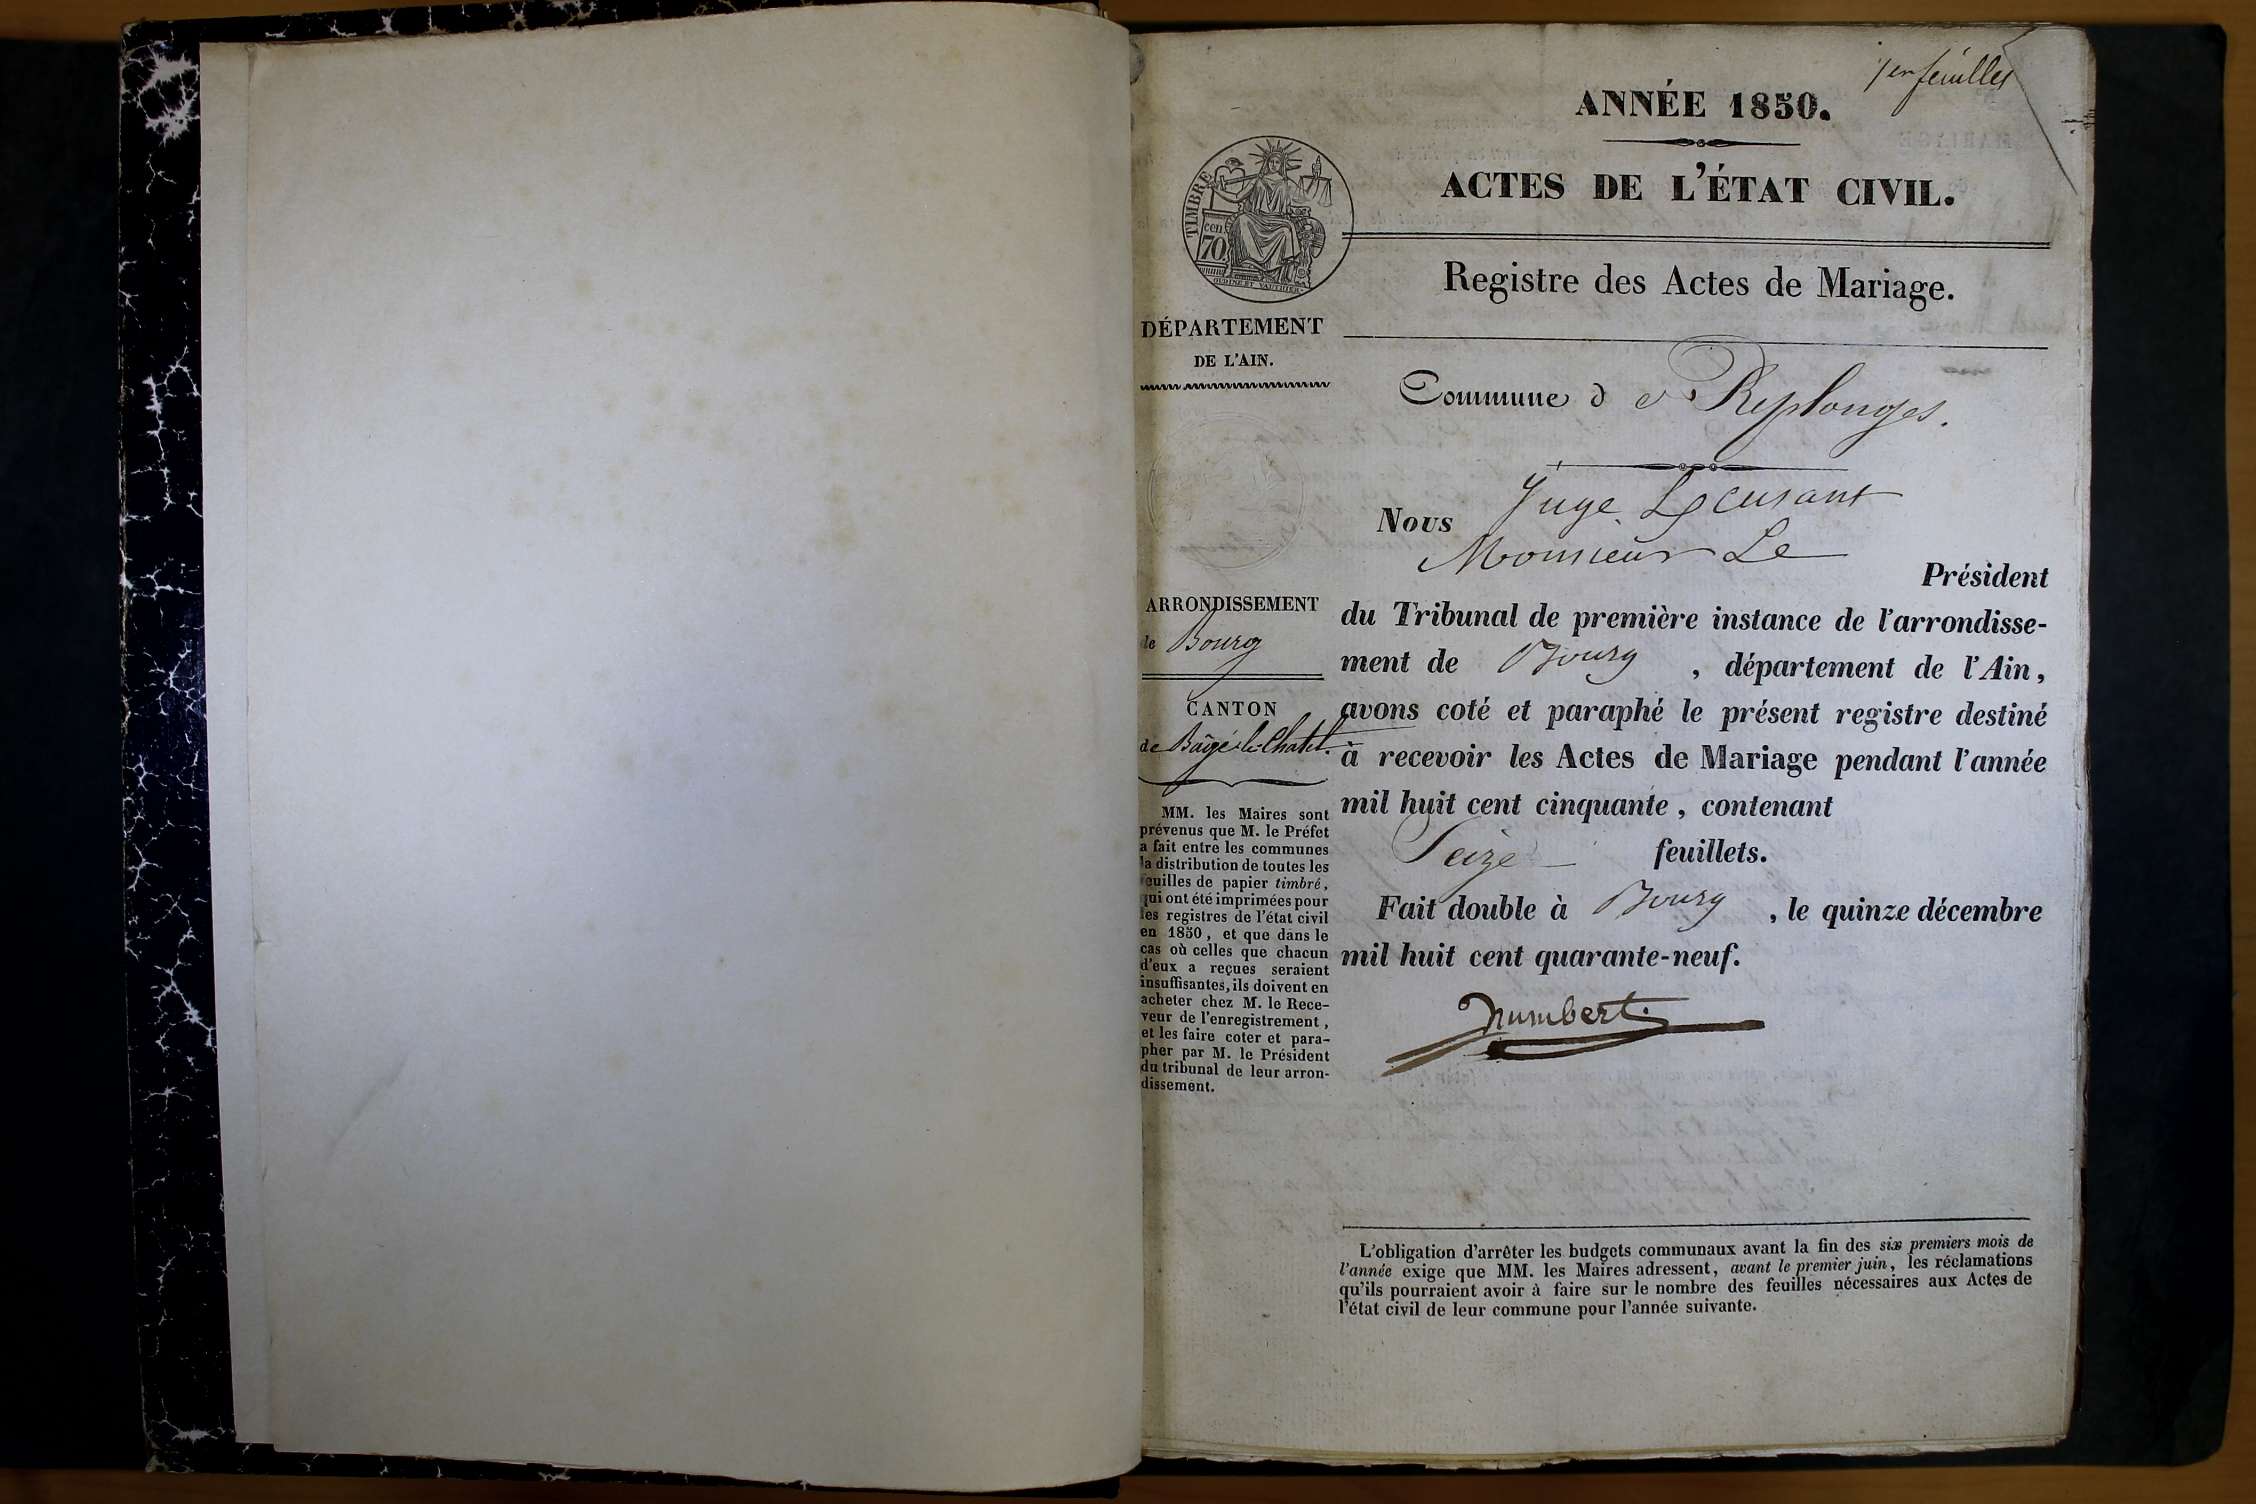 1er feuillet
ANNÉE 1850.
ACTES DE L'ÉTAT CIVIL.
Registre des Actes de Mariage.
TIMBRE
cen.
70.
OUDINE ET VAUTHIER
DÉPARTEMENT
DE L'AIN.
ARRONDISSEMENT
de Bourg
CANTON
de Bâgé-le-Chatel.
MM. les Maires sont
prévenus que M. le Préfet
a fait entre les communes
la distribution de toutes les
feuilles de papier timbré,
qui ont été imprimées pour
les registres de l'état civil
en 1850, et que dans le
cas où celles que chacun
d'eux a reçues seraient
insuffisantes, ils doivent en
acheter chez M. le Rece-
veur de l'enregistrement,
et les faire coter et para-
pher par M. le Président
du tribunal de leur arron-
dissement.
Commune de Replonges.
Nous Juge
Monsieur Le
Président
du Tribunal de première instance de l'arrondisse-
ment de Bourg, département de l'Ain,
avons coté et paraphé le présent registre destiné
à recevoir les Actes de Mariage pendant l'année
mil huit cent cinquante, contenant
Seize feuillets.
Fait double à Bourg, le quinze décembre
mil huit cent quarante-neuf.
humbert.
L'obligation d'arrêter les budgets communaux avant la fin des six premiers mois de
l'année exige que MM. les Maires adressent, avant le premier juin, les réclamations
qu'ils pourraient avoir à faire sur le nombre des feuilles nécessaires aux Actes de
l'état civil de leur commune pour l'année suivante.